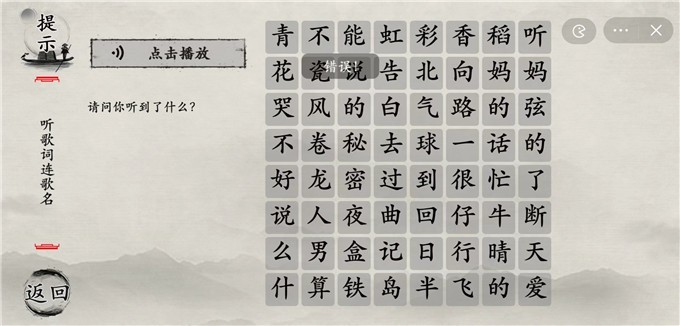 提示
点击播放
请问你听到了什么？
听歌词连歌名
返回
青不能虹彩香稻听
花瓷说告北向妈妈
错误！
哭风的白气路的弦
不卷秘去球一话的
好龙密过到很忙了
说人夜曲回仔牛断
么男盒记日行晴天
什算铁岛半飞的爱